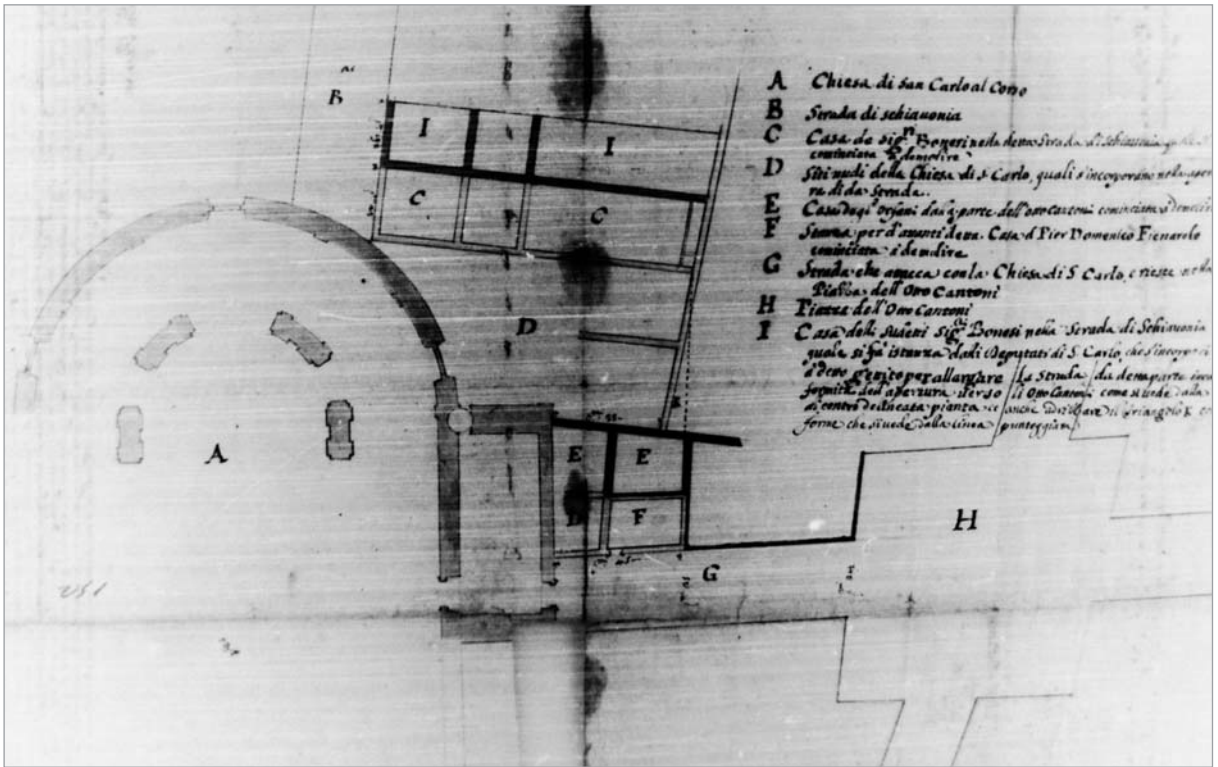 A Chiesa di San Carlo al Corso
B Strada di schiavonia
C Casa de sig.ri Bonesi nella detta Strada di Schiavonia
cominciata à demolire
D Siti nudi della Chiesa di S. Carlo, quali s'incorporano nella
ra di da Strada.
E Casa degl' orfani dalla parte dell'otto Cantoni cominciata a demolire
F Stanza per d'avanti detta Casa d Pier Domenico Fienarolo
cominciata à demolire
G Strada che attacca con la Chiesa di S Carlo, e riesce nella
Piazza dell'Otto Cantoni
H Piazza dell'Otto Cantoni
I Casa delli sudetti sig.ri Bonesi nella Strada di Schiavonia
quale si fà istanza dalli Deputati di S. Carlo, che s'incorpori
per allargare la Strada da detta parte
dell'apertura verso li Otto Cantoni come si vede dalla
delineata pianta e anche il triangolo K
forme che si vede dalla linea punteggiata
B
I
I
C
C
D
E
E
D
F
G
H
A
K